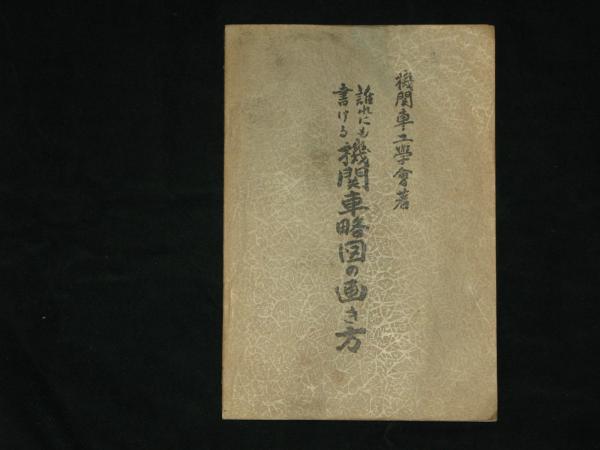 機関車工學會著
誰れにも
書ける
機関車略図の画き方